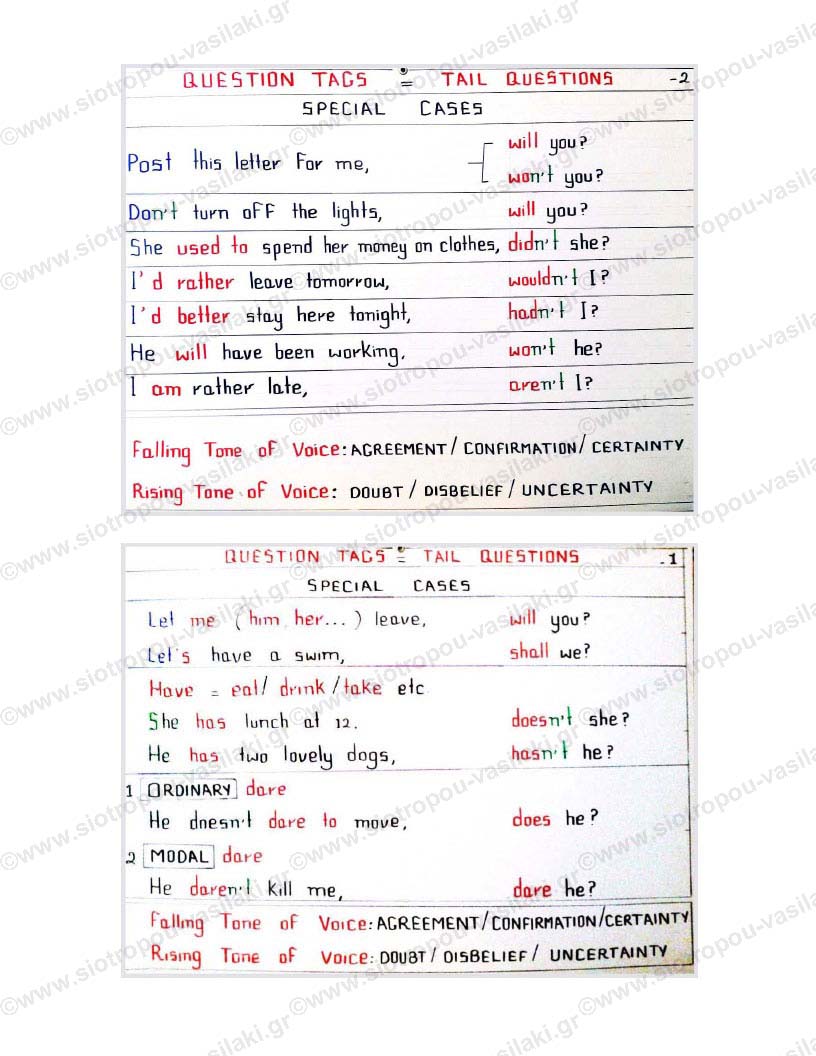 QUESTION TAGS = TAIL QUESTIONS -2
SPECIAL CASES
Post this letter For me, will you?
won't you?
Don't turn oFF the lights, will you?
She used to spend her money on clothes, didn't she?
I'd rather leave tomorrow, wouldn't I?
I'd better stay here tonight, hadn't I?
He will have been working, won't he?
I am rather late, aren't I?
Falling Tone of Voice: AGREEMENT / CONFIRMATION / CERTAINTY
Rising Tone of Voice: DOUBT / DISBELIEF / UNCERTAINTY
QUESTION TAGS = TAIL QUESTIONS -1
SPECIAL CASES
Let me (him, her...) leave, will you?
Let's have a swim, shall we?
Have = eat/ drink /take etc
She has lunch at 12. doesn't she?
He has two lovely dogs, hasn't he?
1 ORDINARY dare
He doesn't dare to move, does he?
2 MODAL dare
He daren't kill me, dare he?
Falling Tone of Voice: AGREEMENT/CONFIRMATION/CERTAINTY
Rising Tone of Voice: DOUBT / DISBELIEF / UNCERTAINTY
©www.siotropou-vasilaki.gr